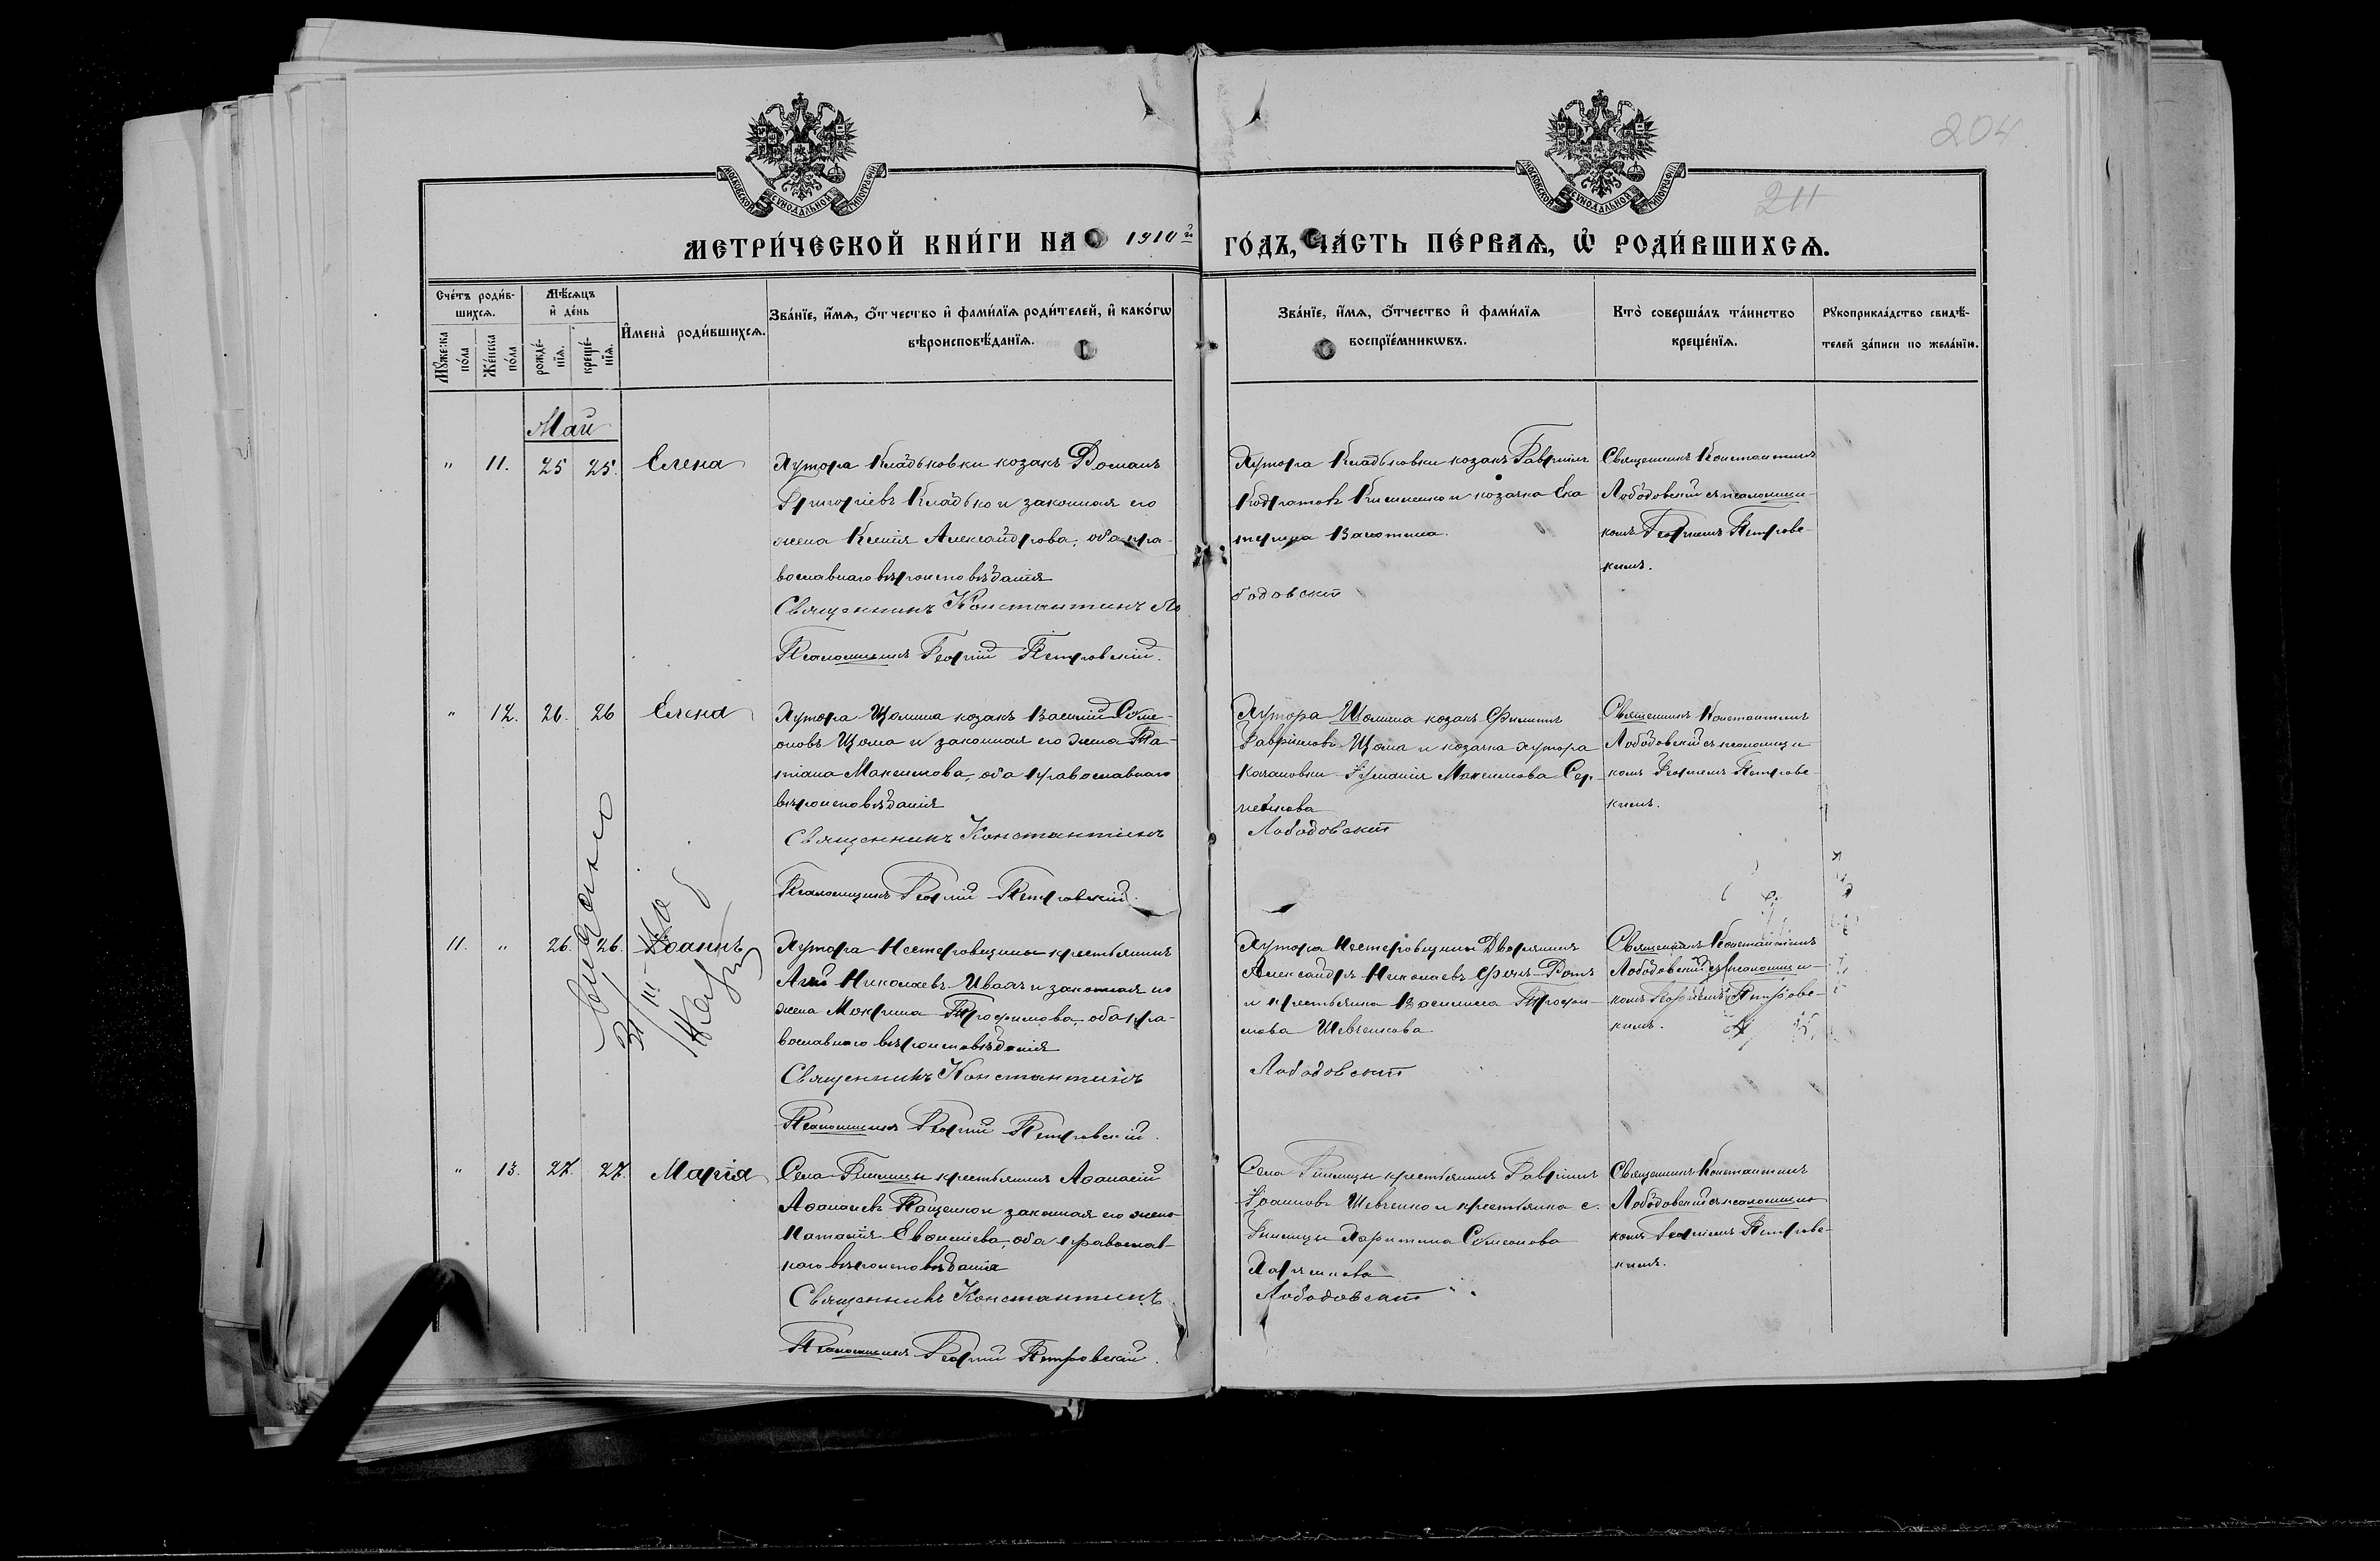 204
211
МОСКОВСКОЙ СѴНОДАЛЬНОЙ ТИПОГРАФІИ
МОСКОВСКОЙ СѴНОДАЛЬНОЙ ТИПОГРАФІИ
МЕТРИ́ЧЕСКОЙ КНИ́ГИ НА 1910й ГО́ДЪ, ЧА́СТЬ ПЕ́РВАѦ, Ѿ РОДИ́ВШИХСѦ.
Сче́тъ роди́в-
шихсѧ.
Мѹ́жеска по́ла
Же́нска по́ла
Мѣ́сѧцъ и҆ де́нь
рожде́-нїѧ.
креще́-нїѧ.
И҆мена̀ роди́вшихсѧ.
Зва́нїе, и҆́мѧ, ѻ҆́тчество и҆ фами́лїѧ роди́телей, и҆ како́гѡ
вѣроисповѣ́данїѧ.
Зва́нїе, и҆́мѧ, ѻ҆́тчество и҆ фами́лїѧ
воспрїе́мникѡвъ.
Кто̀ соверша́лъ та́инство
креще́нїѧ.
Рꙋкоприкла́дство свидѣ́-
телей за́писи по жела́нїю.
Май
" 11. 25 25. Елена
Хутора Кладьковки козакъ Романъ
Григоріевъ Кладько и законная его
жена Ксенія Александрова, оба пра-
вославнаго вѣроисповѣданія
Священникъ Константинъ Ло
Псаломщикъ Георгій Петровскій.
Хутора Кладьковки козакъ Гавріилъ
Кодратовъ и козачка Ека
терина
бодовскій
Священникъ Константинъ
Лободовскій съ псаломщи-
комъ Георгіемъ Петровс-
кимъ.
" 12. 26. 26 Елена
Хутора козакъ Василій Симе-
оновъ Щома и законная его жена Та-
тіана Максимова, оба православнаго
вѣроисповѣданія
Священникъ Константинъ
Псаломщикъ Георгій Петровскій.
Хутора козакъ Филиппъ
Гавріиловъ Щома и козачка хутора
Качановки Максимова Сер-
Лободовскій
Священникъ Константинъ
Лободовскій съ псаломщи-
комъ Георгіемъ Петровс-
кимъ.
11. " 26. 26. Іоаннъ
Выдано
31/III
Хутора Нестеровщины крестьянинъ
Николаевъ Ивахъ и законная его
жена Мокрина Трофимова, оба пра-
вославнаго вѣроисповѣданія
Священникъ Константинъ
Псаломщикъ Георгій Петровскій.
Хутора Нестеровщины Дворянинъ
Александръ Николаевъ Фонъ-Ротъ
и крестьянка Василиса Трофи-
мова Шевченкова
Лободовскій
Священникъ Константинъ
Лободовскій съ псаломщи-
комъ Георгіемъ Петровс-
кимъ.
" 13. 27. 27. Марія
Села Гнилицы крестьянинъ Афанасій
Афанасіевъ Пащенко и законная его жена
Наталія Евфиміева, оба православ-
наго вѣроисповѣданія
Священникъ Константинъ
Псаломщикъ Георгій Петровскій.
Села Гнилицы крестьянинъ Гавріилъ
Іоанновъ Шевченко и крестьянка с.
Гнилицы Харитина Симеонова
Лободовскій
Священникъ Константинъ
Лободовскій съ псаломщи-
комъ Георгіемъ Петровс-
кимъ.